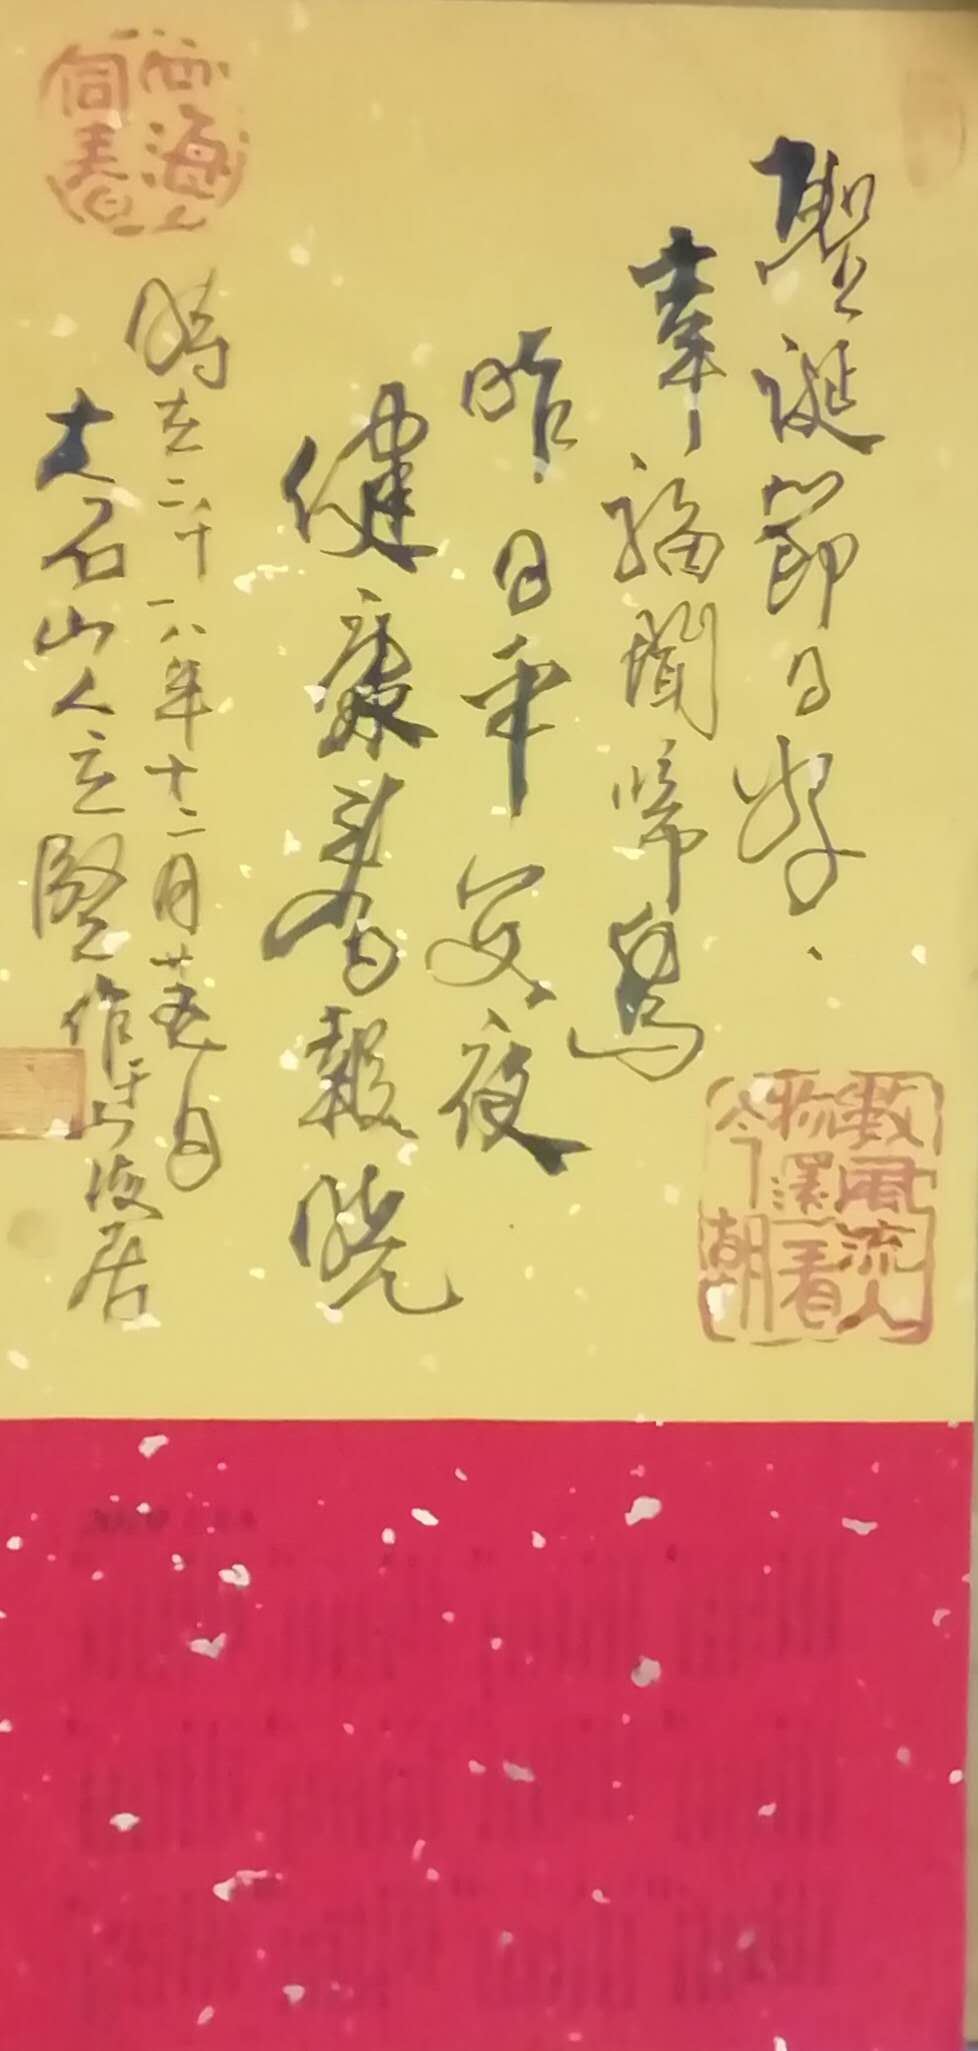 聖誕節日好
幸福聞啼鳥
昨日平安夜
健康春報曉
時在二千一八年十二月廿五日
大石山人立賢作于海居
數風流人
物還看
今朝
四海
同春